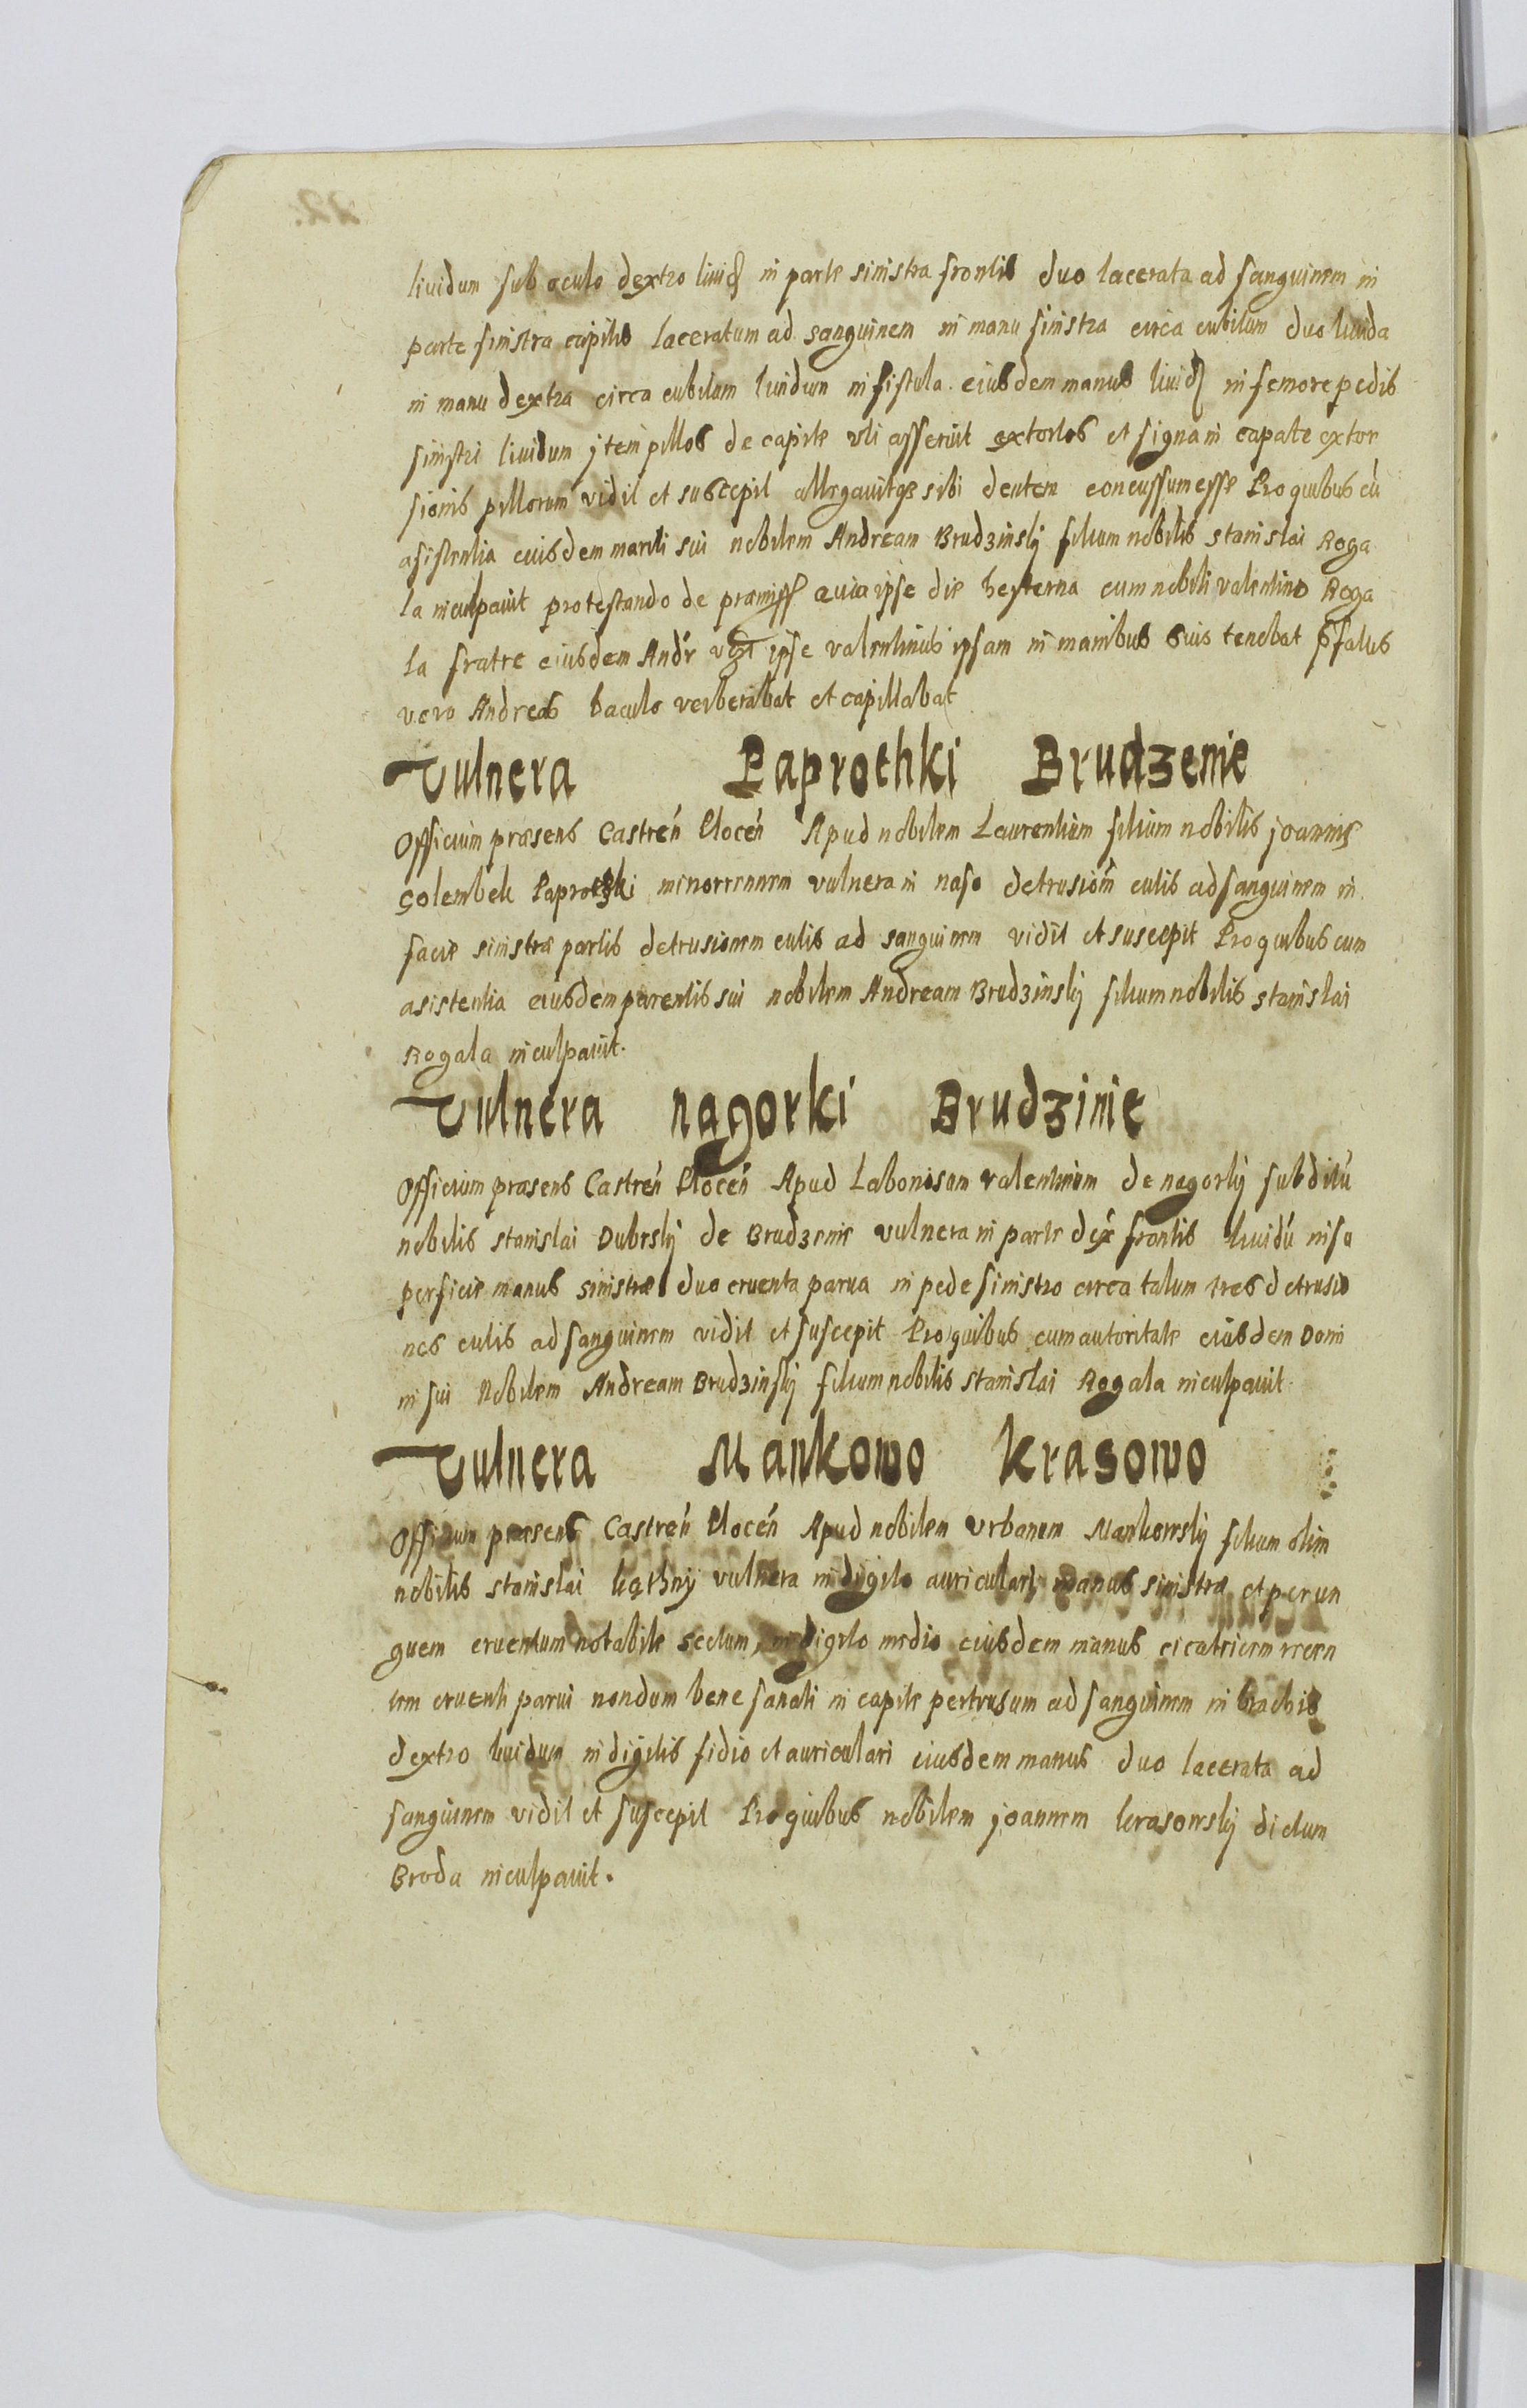 liuidum sub oculo dextro liuid in parte sinistra frontis duo lacerata ad sanguinem in
parte sinistra capitis laceratum ad sanguinem in manu sinistra circa cubitum duo liuida
in manu dextra circa cubitum liuidum in fistula eiusdem manus liuid in femore pedis
sinistri liuidum jtem pillos de capite vti asseruit extortos et signa in capite extor
sionis pillorum vidit et suscepit allegauitqe sibi dentem concussum esse Pro quibus cū
asistentia eiusdem mariti sui nobilem Andream Brudzinskÿ filium nobilis stanislai Roga
la inculpauit protestando de præmiss quia ipse die hesterna cum nobili valentino Roga
la fratre eiusdem Andr ipse valentinus ipsam in manibus suis tenebat p̄fatus
vero Andreas baculo verberabat et capillabat
Vulnera Paprothki Brudzenie
Officium præsens Castreń Ploceń Apud nobilem Laurentium filium nobilis joannis
Golembek Paprotski minorennem vulnera in naso detrusiom̄ cutis ad sanguinem in
facie sinistræ partis detrusionem cutis ad sanguinem vidit et suscepit Pro quibus cum
asistentia eiusdem parentis sui nobilem Andream Brudzinskÿ filium nobilis stanislai
Rogala inculpauit.
Vulnera nagorki Brudzinie
Officium præsens Castreń Plocéń Apud Laboriosum valentinum de nagorkÿ subditū
nobilis stanislai Dubrskÿ de Brudzenie vulnera in parte dex frontis liuidū in su
perficie manus sinistræ duo cruenta parua in pede sinistro circa talum tres detrusio
nes cutis ad sanguinem vidit et suscepit Pro quibus cum autoritate eiusdem Domi
ni sui Nobilem Andream Brudzinskÿ filium nobilis stanislai Rogala inculpauit.
Vulnera Mankowo Krasowo
Officium præsens Castreń Plocéń Apud nobilem vrbanum Mankowskÿ filium olim
nobilis stanislai vulnera in digito auriculari manus sinistræ et per un
guem cruentum notabile sectum, in digito medio eiusdem manus cicatricem recen
tem cruenti parui nondum bene sanati in capite pertrusum ad sanguinem in brachio
dextro liuidum in digitis fidio et auriculari eiusdem manus duo lacerata ad
sanguinem vidit et suscepit Pro quibus nobilem joannem krasowskÿ dictum
Broda inculpauit.